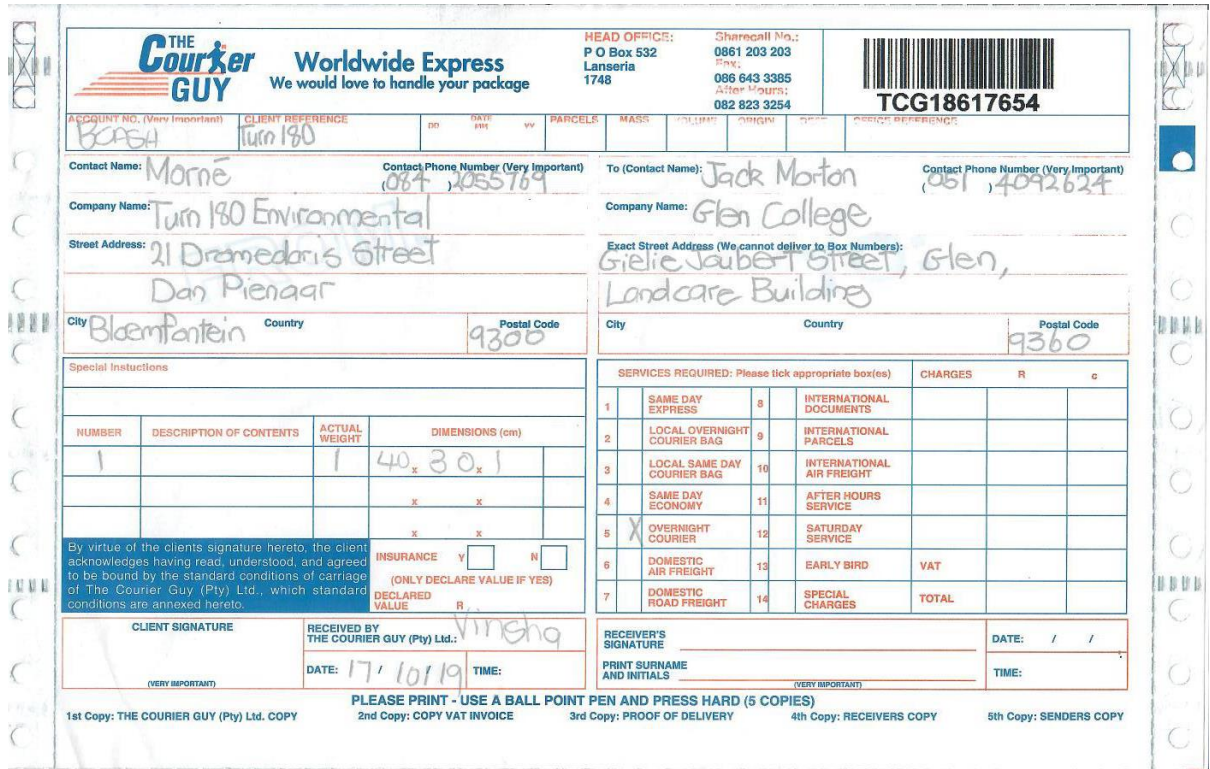 THE Courier GUY
Worldwide Express
We would love to handle your package
HEAD OFFICE:
P O Box 532
Lanseria
1748
Sharecall No.:
0861 203 203
Fax:
086 643 3385
After Hours:
082 823 3254
TCG18617654
ACCOUNT NO. (Very Important) CLIENT REFERENCE DD DATE MM YY PARCELS MASS VOLUME ORIGIN DEST OFFICE REFERENCE
BCASH Turn 180
Contact Name: Morné Contact Phone Number (Very Important) (084) 2055769
Company Name: Turn 180 Environmental
Street Address: 21 Dromedaris Street
Dan Pienaar
City Bloemfontein Country Postal Code 9300
To (Contact Name): Jack Morton Contact Phone Number (Very Important) (051) 4092624
Company Name: Glen College
Exact Street Address (We cannot deliver to Box Numbers):
Gielie Joubert Street, Glen,
Landcare Building
City Country Postal Code 9360
Special Instuctions
NUMBER DESCRIPTION OF CONTENTS ACTUAL WEIGHT DIMENSIONS (cm)
1 1 40 x 30 x 1
x x
x x
By virtue of the clients signature hereto, the client
acknowledges having read, understood, and agreed
to be bound by the standard conditions of carriage
of The Courier Guy (Pty) Ltd., which standard
conditions are annexed hereto.
INSURANCE Y N
(ONLY DECLARE VALUE IF YES)
DECLARED VALUE R
SERVICES REQUIRED: Please tick appropriate box(es) CHARGES R c
1 SAME DAY EXPRESS 8 INTERNATIONAL DOCUMENTS
2 LOCAL OVERNIGHT COURIER BAG 9 INTERNATIONAL PARCELS
3 LOCAL SAME DAY COURIER BAG 10 INTERNATIONAL AIR FREIGHT
4 SAME DAY ECONOMY 11 AFTER HOURS SERVICE
5 X OVERNIGHT COURIER 12 SATURDAY SERVICE
6 DOMESTIC AIR FREIGHT 13 EARLY BIRD VAT
7 DOMESTIC ROAD FREIGHT 14 SPECIAL CHARGES TOTAL
CLIENT SIGNATURE
(VERY IMPORTANT)
RECEIVED BY
THE COURIER GUY (Pty) Ltd.:
DATE: 17 / 10 / 19 TIME:
RECEIVER'S SIGNATURE DATE: / /
PRINT SURNAME AND INITIALS TIME:
(VERY IMPORTANT)
PLEASE PRINT - USE A BALL POINT PEN AND PRESS HARD (5 COPIES)
1st Copy: THE COURIER GUY (Pty) Ltd. COPY 2nd Copy: COPY VAT INVOICE 3rd Copy: PROOF OF DELIVERY 4th Copy: RECEIVERS COPY 5th Copy: SENDERS COPY